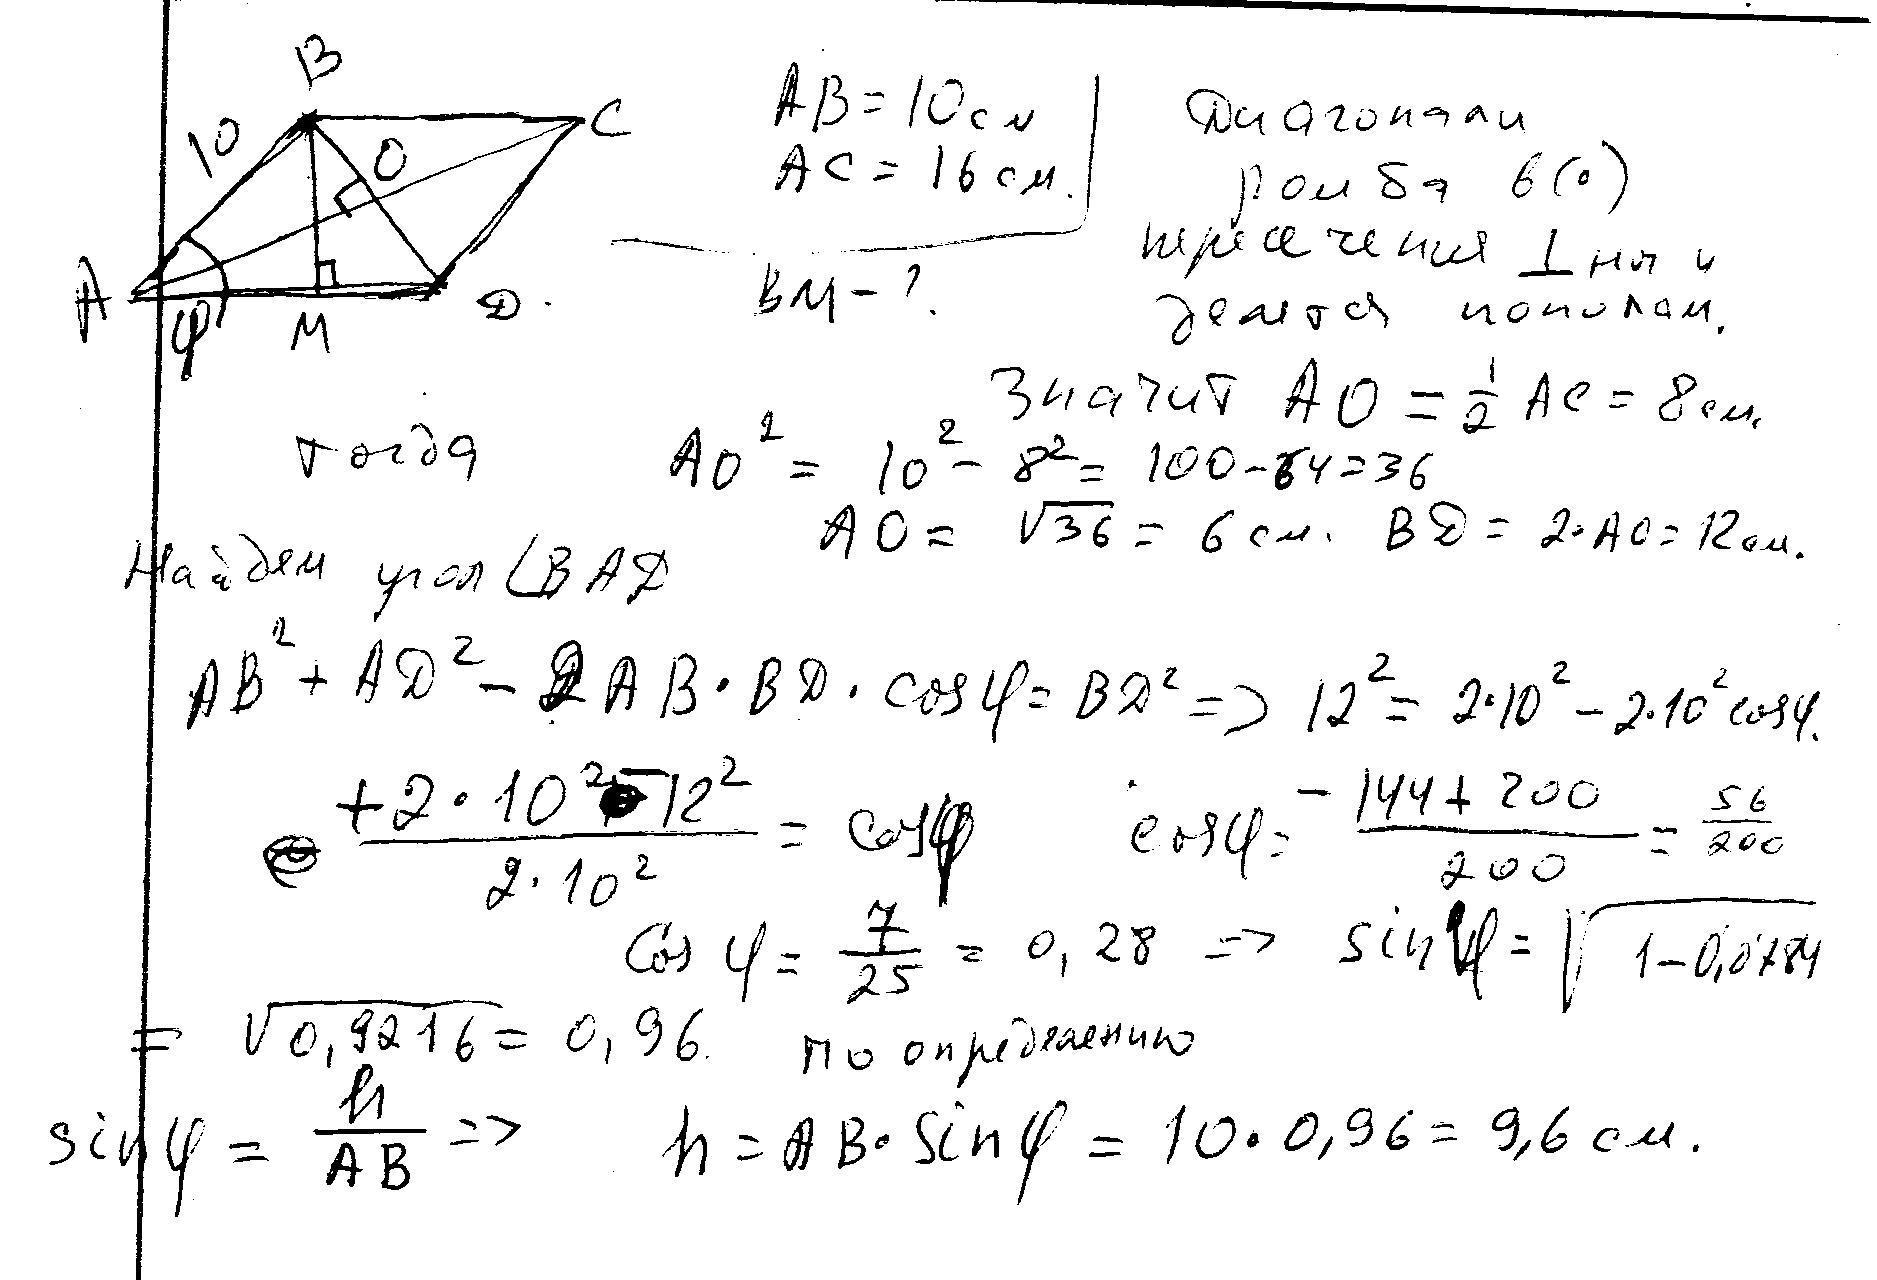 B
C
10
O
A
φ
M
D.
AB = 10 см
AC = 16 см.
BM - ?
Диагонали
ромба в (•)
пересечения ⊥ ны и
делятся пополам.
Значит AO = 1/2 AC = 8 см.
тогда AO² = 10² - 8² = 100 - 64 = 36
AO = √36 = 6 см. BD = 2·AO = 12 см.
Найдем угол ∠BAD
AB² + AD² - 2AB·BD·cosφ = BD² => 12² = 2·10² - 2·10² cosφ.
(+2·10² - 12²)/(2·10²) = cosφ cosφ = (-144 + 200)/200 = 56/200
Cos φ = 7/25 = 0,28 => sinφ = √(1 - 0,0784)
= √0,9216 = 0,96. по определению
sinφ = h/AB => h = AB·sinφ = 10·0,96 = 9,6 см.